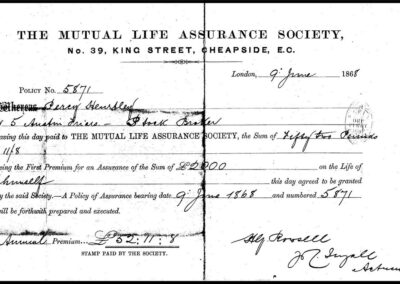 THE MUTUAL LIFE ASSURANCE SOCIETY,
No. 39, KING STREET, CHEAPSIDE, E.C.
London, 9 June 1868
POLICY No. 5871
Whereas Percy
5 Austin Friars – Stock Broker
having this day paid to THE MUTUAL LIFE ASSURANCE SOCIETY, the Sum of Fifty two Pounds
11/8
being the First Premium for an Assurance of the Sum of £2000 on the Life of
himself this day agreed to be granted
by the said Society.—A Policy of Assurance bearing date 9 June 1868 and numbered 5871
will be forthwith prepared and executed.
Annual Premium £52:11:8
STAMP PAID BY THE SOCIETY.